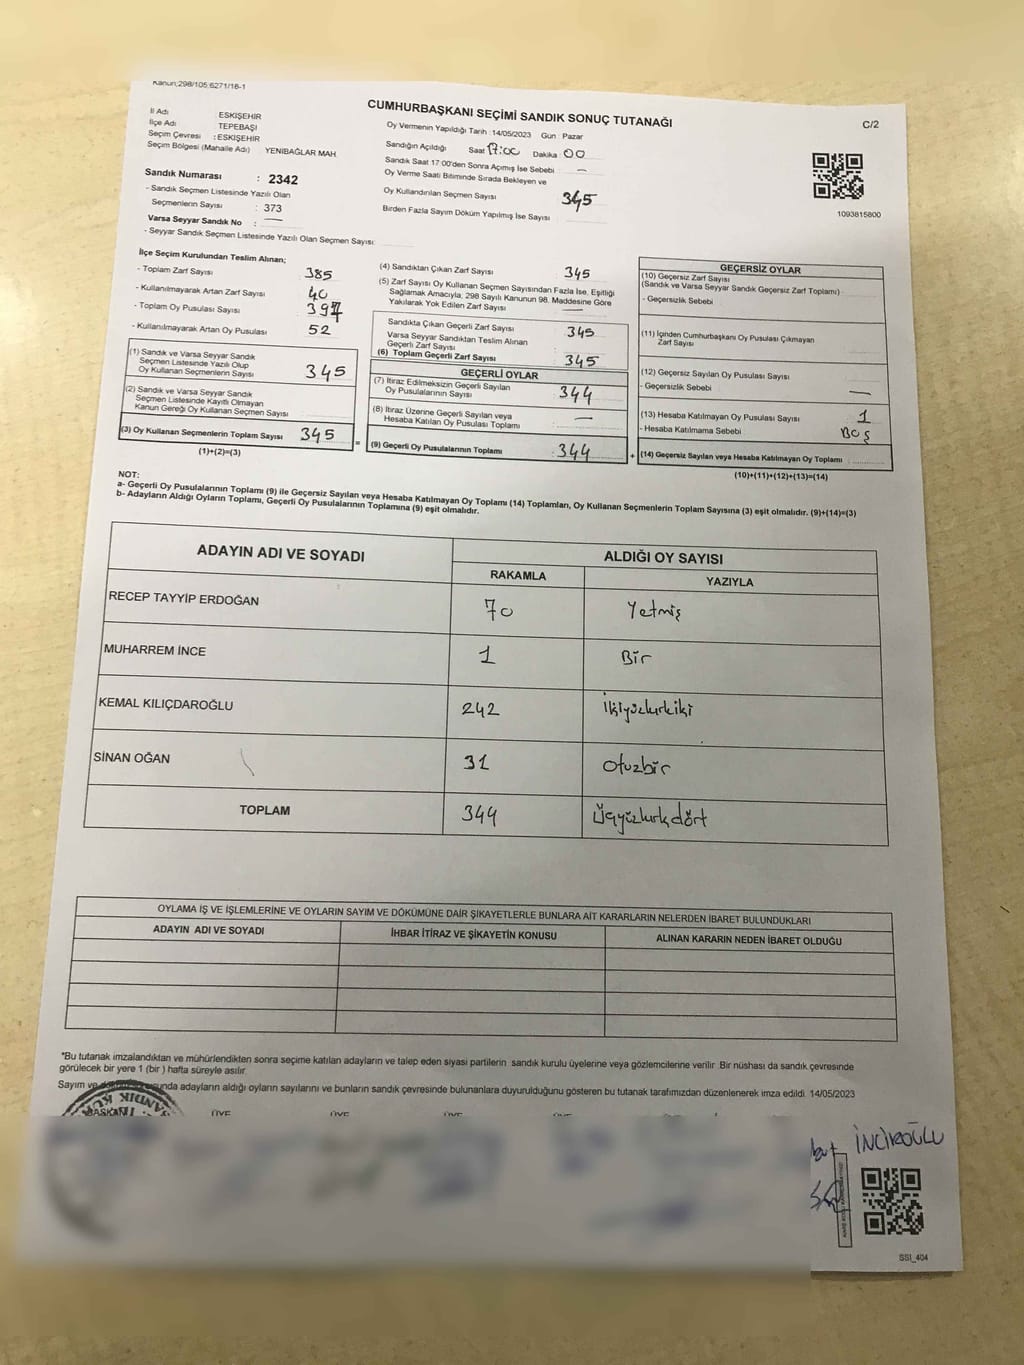 Kanun;298/105;6271/16-1
CUMHURBAŞKANI SEÇİMİ SANDIK SONUÇ TUTANAĞI
C/2
İl Adı : ESKİŞEHİR
İlçe Adı : TEPEBAŞI
Seçim Çevresi : ESKİŞEHİR
Seçim Bölgesi (Mahalle Adı) YENİBAĞLAR MAH.
Sandık Numarası : 2342
- Sandık Seçmen Listesinde Yazılı Olan
Seçmenlerin Sayısı : 373
Varsa Seyyar Sandık No : —
- Seyyar Sandık Seçmen Listesinde Yazılı Olan Seçmen Sayısı:
Oy Vermenin Yapıldığı Tarih :14/05/2023 Gün : Pazar
Sandığın Açıldığı Saat 17:00 Dakika 00
Sandık Saat 17:00'den Sonra Açımış İse Sebebi —
Oy Verme Saati Bitiminde Sırada Bekleyen ve
Oy Kullandırılan Seçmen Sayısı 345
Birden Fazla Sayım Döküm Yapılmış İse Sayısı
1093815800
İlçe Seçim Kurulundan Teslim Alınan;
- Toplam Zarf Sayısı 385
- Kullanılmayarak Artan Zarf Sayısı 40
- Toplam Oy Pusulası Sayısı 397
- Kullanılmayarak Artan Oy Pusulası 52
(1) Sandık ve Varsa Seyyar Sandık
Seçmen Listesinde Yazılı Olup
Oy Kullanan Seçmenlerin Sayısı 345
(2) Sandık ve Varsa Seyyar Sandık
Seçmen Listesinde Kayıtlı Olmayan
Kanun Gereği Oy Kullanan Seçmen Sayısı
(3) Oy Kullanan Seçmenlerin Toplam Sayısı 345
(1)+(2)=(3)
(4) Sandıktan Çıkan Zarf Sayısı 345
(5) Zarf Sayısı Oy Kullanan Seçmen Sayısından Fazla İse, Eşitliği
Sağlamak Amacıyla; 298 Sayılı Kanunun 98. Maddesine Göre
Yakılarak Yok Edilen Zarf Sayısı —
Sandıkta Çıkan Geçerli Zarf Sayısı 345
Varsa Seyyar Sandıktan Teslim Alınan
Geçerli Zarf Sayısı
(6) Toplam Geçerli Zarf Sayısı 345
GEÇERLİ OYLAR
(7) İtiraz Edilmeksizin Geçerli Sayılan
Oy Pusulalarının Sayısı 344
(8) İtiraz Üzerine Geçerli Sayılan veya
Hesaba Katılan Oy Pusulası Toplamı —
= (9) Geçerli Oy Pusulalarının Toplamı : 344
GEÇERSİZ OYLAR
(10) Geçersiz Zarf Sayısı
(Sandık ve Varsa Seyyar Sandık Geçersiz Zarf Toplamı)
- Geçersizlik Sebebi
(11) İçinden Cumhurbaşkanı Oy Pusulası Çıkmayan
Zarf Sayısı
(12) Geçersiz Sayılan Oy Pusulası Sayısı
- Geçersizlik Sebebi —
(13) Hesaba Katılmayan Oy Pusulası Sayısı 1
- Hesaba Katılmama Sebebi Boş
+ (14) Geçersiz Sayılan veya Hesaba Katılmayan Oy Toplamı
(10)+(11)+(12)+(13)=(14)
NOT:
a- Geçerli Oy Pusulalarının Toplamı (9) ile Geçersiz Sayılan veya Hesaba Katılmayan Oy Toplamı (14) Toplamları, Oy Kullanan Seçmenlerin Toplam Sayısına (3) eşit olmalıdır. (9)+(14)=(3)
b- Adayların Aldığı Oyların Toplamı, Geçerli Oy Pusulalarının Toplamına (9) eşit olmalıdır.
ADAYIN ADI VE SOYADI ALDIĞI OY SAYISI
RAKAMLA YAZIYLA
RECEP TAYYİP ERDOĞAN 70 Yetmiş
MUHARREM İNCE 1 Bir
KEMAL KILIÇDAROĞLU 242 İkiyüzkırkiki
SİNAN OĞAN 31 otuzbir
TOPLAM 344 Üçyüzkırkdört
OYLAMA İŞ VE İŞLEMLERİNE VE OYLARIN SAYIM VE DÖKÜMÜNE DAİR ŞİKAYETLERLE BUNLARA AİT KARARLARIN NELERDEN İBARET BULUNDUKLARI
ADAYIN ADI VE SOYADI İHBAR İTİRAZ VE ŞİKAYETİN KONUSU ALINAN KARARIN NEDEN İBARET OLDUĞU
"Bu tutanak imzalandıktan ve mühürlendikten sonra seçime katılan adayların ve talep eden siyasi partilerin sandık kurulu üyelerine veya gözlemcilerine verilir. Bir nüshası da sandık çevresinde
görülecek bir yere 1 (bir ) hafta süreyle asılır.
Sayım ve adayların aldığı oyların sayılarını ve bunların sandık çevresinde bulunanlara duyurulduğunu gösteren bu tutanak tarafımızdan düzenlenerek imza edildi. 14/05/2023
BAŞKAN ÜYE ÜYE ÜYE
İNCİROĞLU
SS1_404